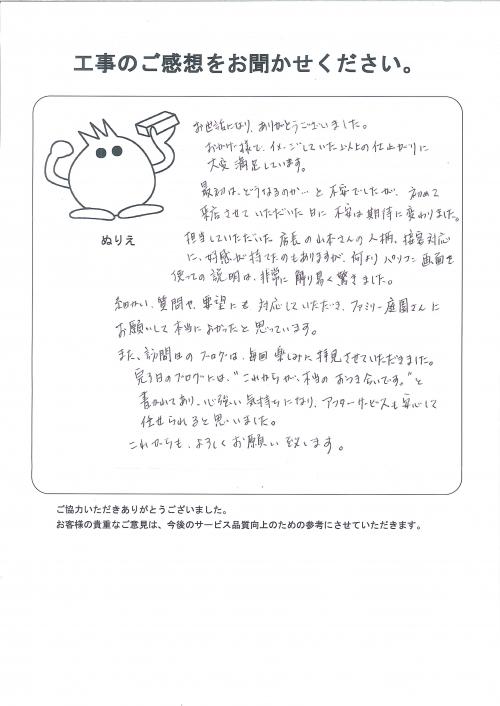 工事のご感想をお聞かせください。
ぬりえ
お世話になり、ありがとうございました。
おかげ様で、イメージしていた以上の仕上がりに
大変満足しています。
最初は、どうなるのか…と不安でしたが、初めて
来店させていただいた日に不安は期待に変わりました。
担当していただいた店長の山本さんの人柄、接客対応
に、好感が持てたのもありますが、何よりパソコン画面を
使っての説明は、非常に解り易く驚きました。
細かい、質問や、要望にも対応していただき、ファミリー庭園さんに
お願いして本当によかったと思っています。
また、訪問日のブログは、毎回楽しみに拝見させていただきました。
完了日のブログには、"これからが、本当のおつき合いです。"と
書かれてあり、心強い気持ちになり、アフターサービスも安心して
任せられると思いました。
これからも、よろしくお願い致します。
ご協力いただきありがとうございました。
お客様の貴重なご意見は、今後のサービス品質向上のための参考にさせていただきます。